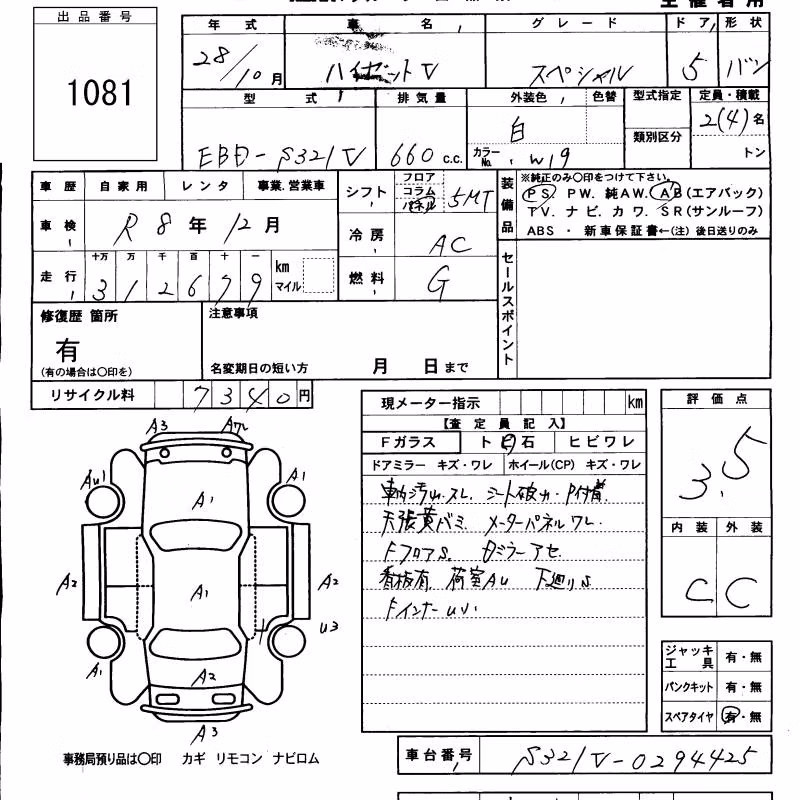 出品番号
1081
年式 車名 グレード ドア 形状
28/10月 ハイゼットV スペシャル 5 バン
型式 排気量 外装色 色替 型式指定 定員・積載
EBD-S321V 660c.c. 白 類別区分 2(4)名
カラーNo. W19 トン
車歴 自家用 レンタ 事業.営業車
シフト フロア コラム パネル 5MT
装備品 ※純正のみ○印をつけて下さい。
PS. PW. 純AW. AB(エアバック)
TV. ナビ. カワ. SR(サンルーフ)
ABS ・ 新車保証書←(注) 後日送りのみ
車検 R8年12月
冷房 AC
走行 十万 万 千 百 十 一
312679 km マイル
燃料 G
セールスポイント
修復歴 箇所
有
(有の場合は○印を)
注意事項
名変期日の短い方 月 日まで
リサイクル料 7340円
現メーター指示 km
【査定員記入】
Fガラス ト ビ 石 ヒビワレ
ドアミラー キズ・ワレ ホイール(CP) キズ・ワレ
車内汚ム.スレ. シート破れ. P付着.
天張黄バミ メーターパネルワレ.
FフロアS. ミラーアセ.
看板有. 荷室AU 下廻りS
Fインナーuvi
評価点
3.5
内装 外装
C C
ジャッキ工具 有・無
パンクキット 有・無
スペアタイヤ 有・無
A3
AU1 A1
A1
A2 A1 A2
U3
A1 A2
A3
事務局預り品は○印 カギ リモコン ナビロム
車台番号 S321V-0294425